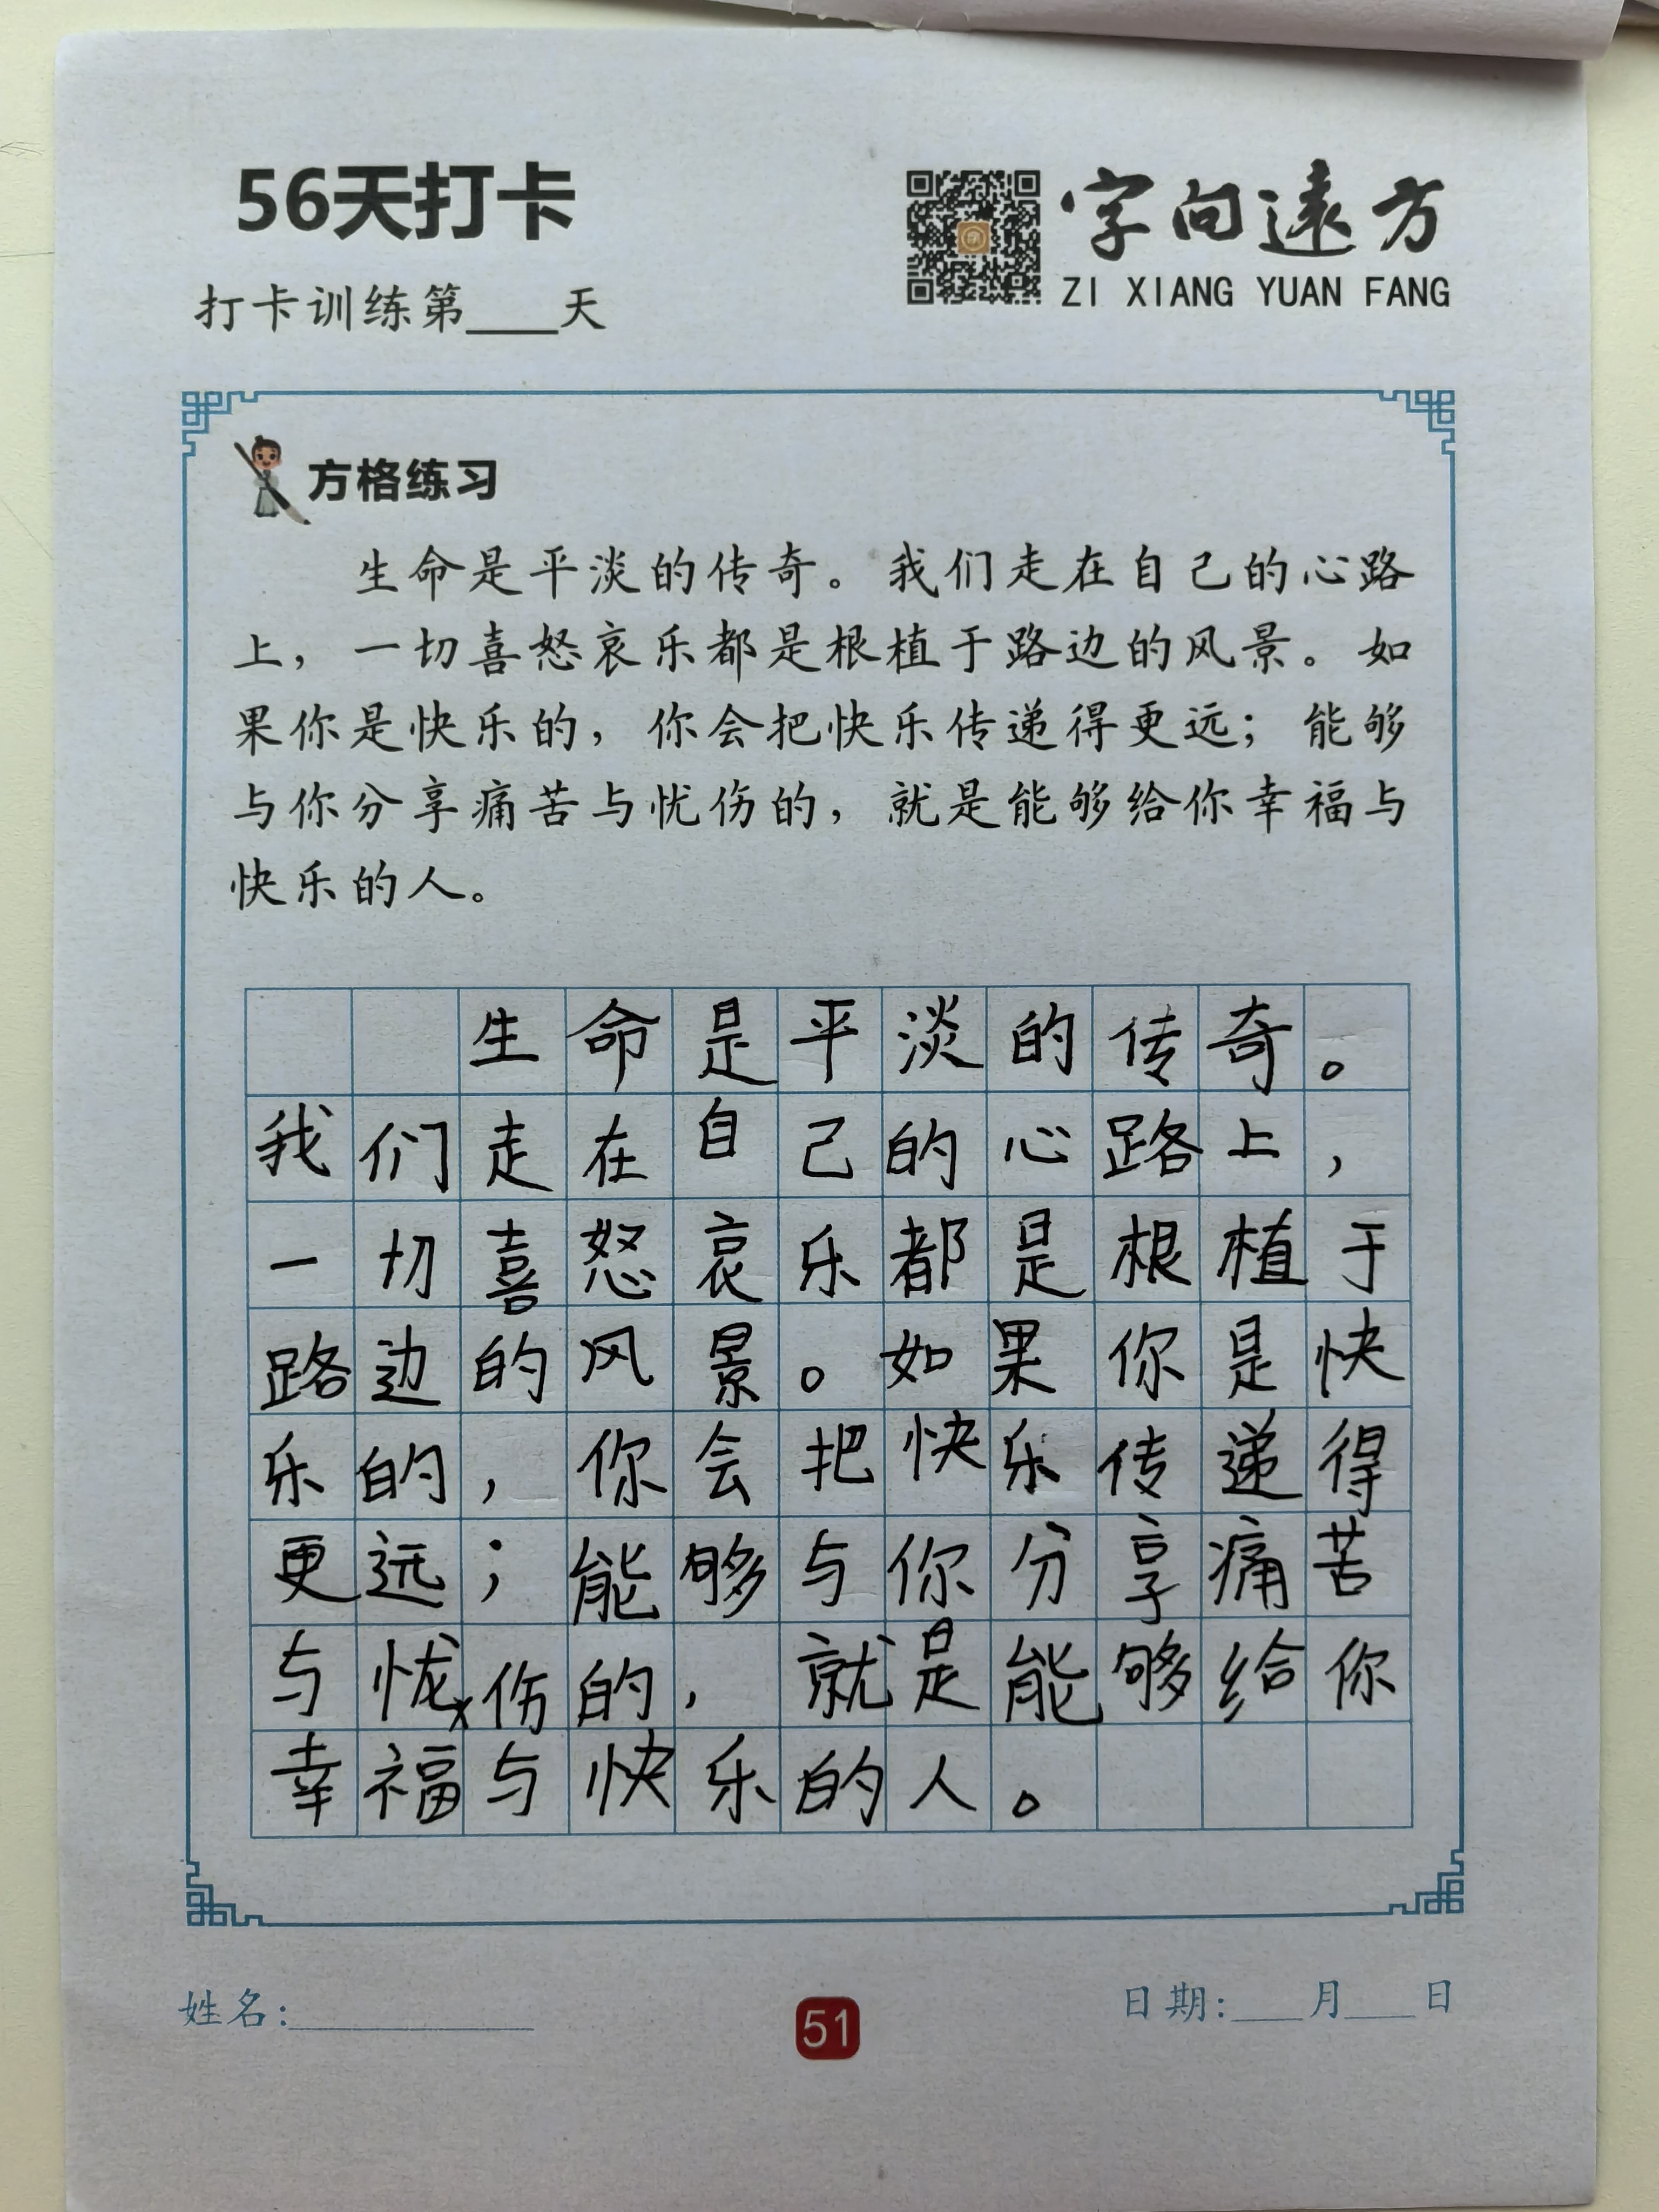 56天打卡
打卡训练第____天
字向遠方
ZI XIANG YUAN FANG
方格练习
生命是平淡的传奇。我们走在自己的心路
上，一切喜怒哀乐都是根植于路边的风景。如
果你是快乐的，你会把快乐传递得更远；能够
与你分享痛苦与忧伤的，就是能够给你幸福与
快乐的人。
生命是平淡的传奇。
我们走在自己的心路上，
一切喜怒哀乐都是根植于
路边的风景。如果你是快
乐的，你会把快乐传递得
更远；能够与你分享痛苦
与忧x伤的，就是能够给你
幸福与快乐的人。
姓名:__________
51
日期:___月___日